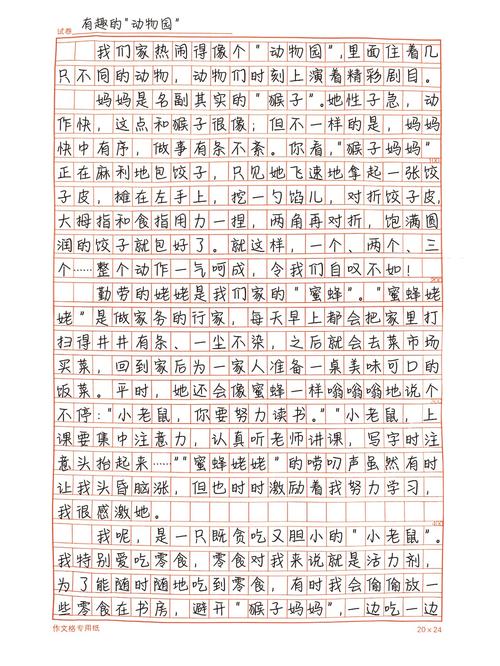 试卷 有趣的“动物园”
我们家热闹得像个“动物园”，里面住着几
只不同的动物，动物们时刻上演着精彩剧目。
妈妈是名副其实的“猴子”。她性子急，动
作快，这点和猴子很像；但不一样的是，妈妈
快中有序，做事有条不紊。你看，“猴子妈妈”
100
正在麻利地包饺子，只见她飞速地拿起一张饺
子皮，摊在左手上，挖一勺馅儿，对折饺子皮，
大拇指和食指用力一捏，两角再对折，饱满圆
润的饺子就包好了。就这样，一个、两个、三
个……整个动作一气呵成，令我们自叹不如！
200
勤劳的姥姥是我们家的“蜜蜂”。“蜜蜂姥
姥”是做家务的行家，每天早上都会把家里打
扫得井井有条、一尘不染，之后就会去菜市场
买菜，回到家后为一家人准备一桌美味可口的
饭菜。平时，她还会像蜜蜂一样嗡嗡嗡地说个
不停：“小老鼠，你要努力读书。”“小老鼠，上
课要集中注意力，认真听老师讲课，写字时注
意头抬起来……”“蜜蜂姥姥”的唠叨声虽然有时
让我头昏脑涨，但也时时激励着我努力学习，
我很感激她。
400
我呢，是一只既贪吃又胆小的“小老鼠”。
我特别爱吃零食，零食对我来说就是活力剂，
为了能随时随地吃到零食，有时我会偷偷放一
些零食在书房，避开“猴子妈妈”，一边吃一边
作文格专用纸 20×24